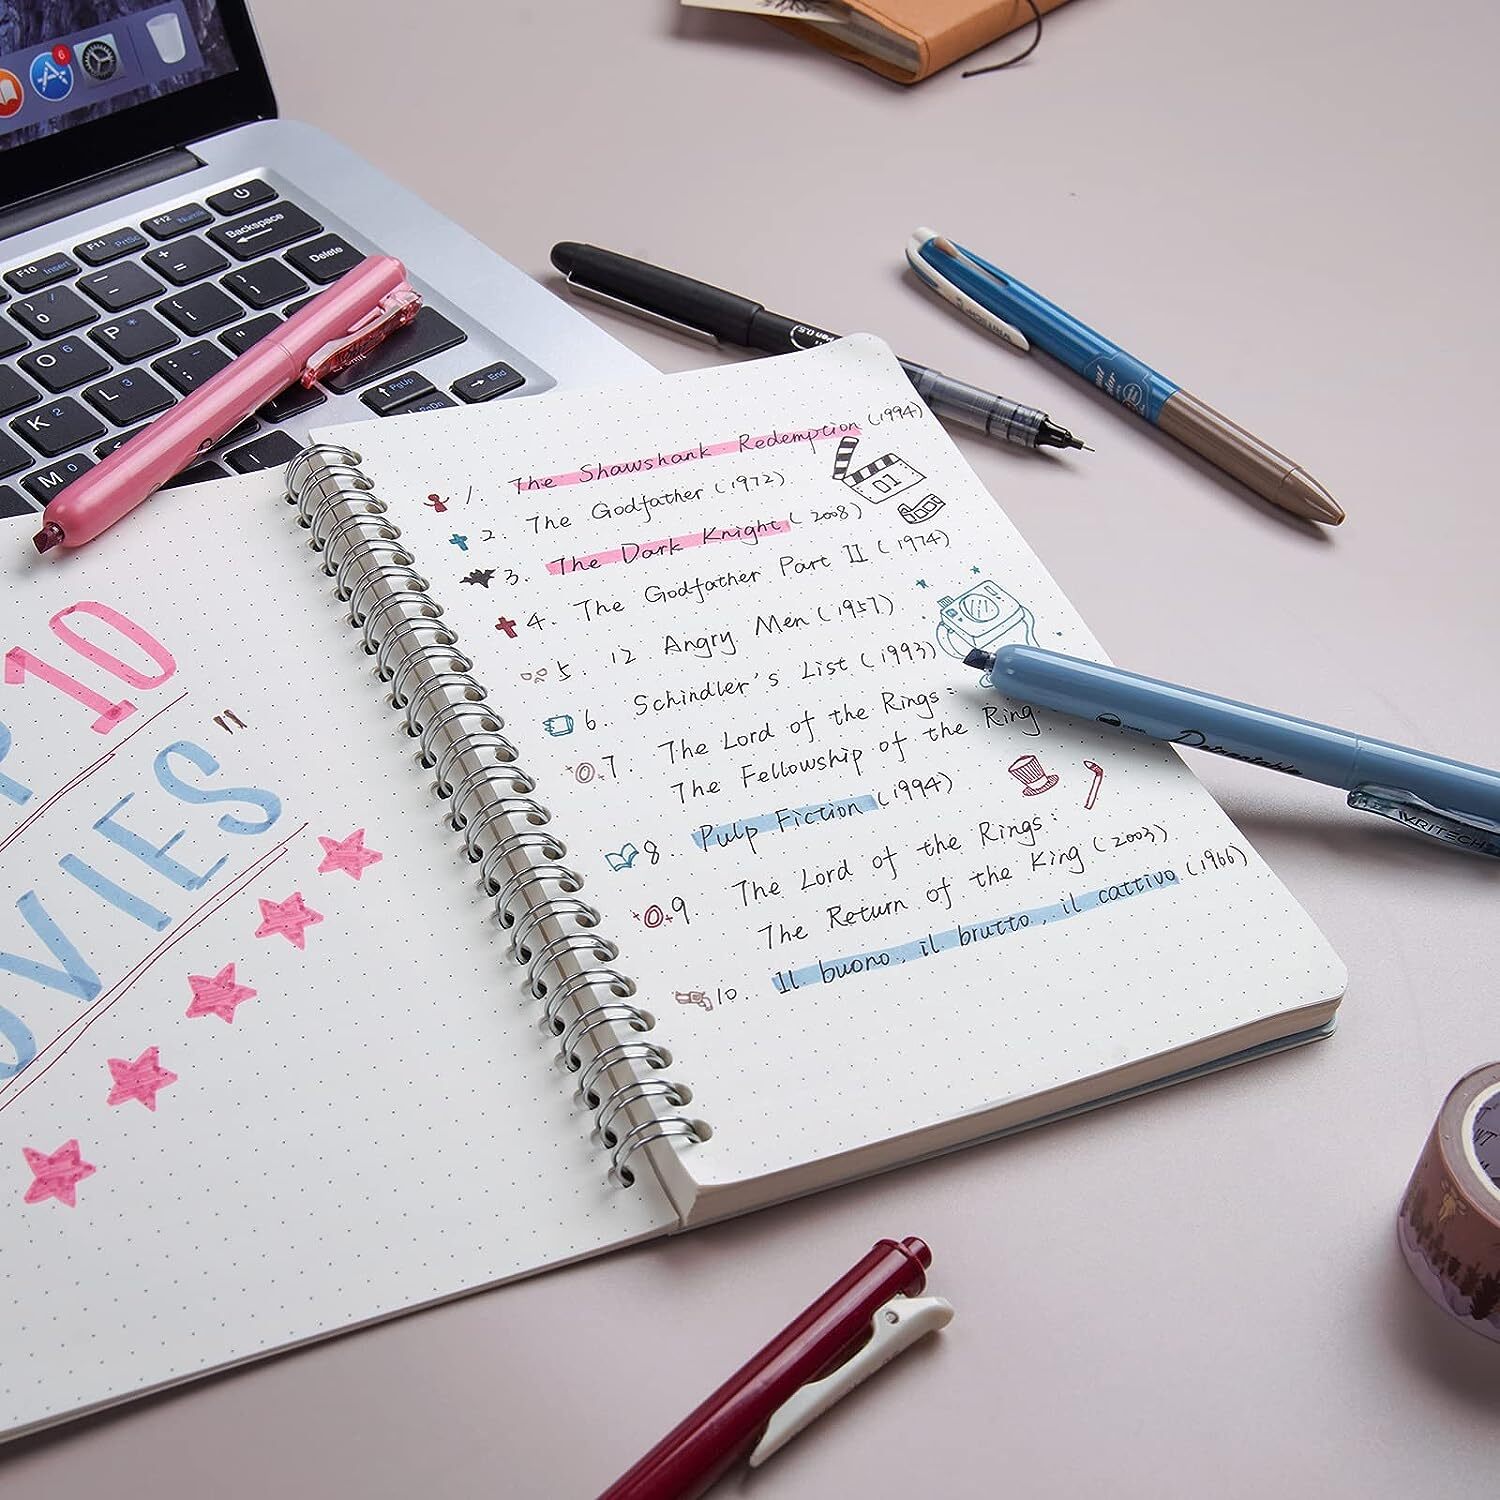 6
F10 Insert
F11 PrtSc
F12 NumLk
Backspace
Delete
+
=
-
)
0
P *
{
[
}
]
O 6
L 3
K 2
M 0
"
PgUp
PgDn
End
10
MOVIES"
1. The Shawshank Redemption (1994)
2. The Godfather (1972)
3. The Dark Knight (2008)
4. The Godfather Part II (1974)
5. 12 Angry Men (1957)
6. Schindler's List (1993)
7. The Lord of the Rings:
The Fellowship of the Ring
8. Pulp Fiction (1994)
9. The Lord of the Rings:
The Return of the King (2003)
10. Il buono, il brutto, il cattivo (1966)
01
Retractable
WRITECH